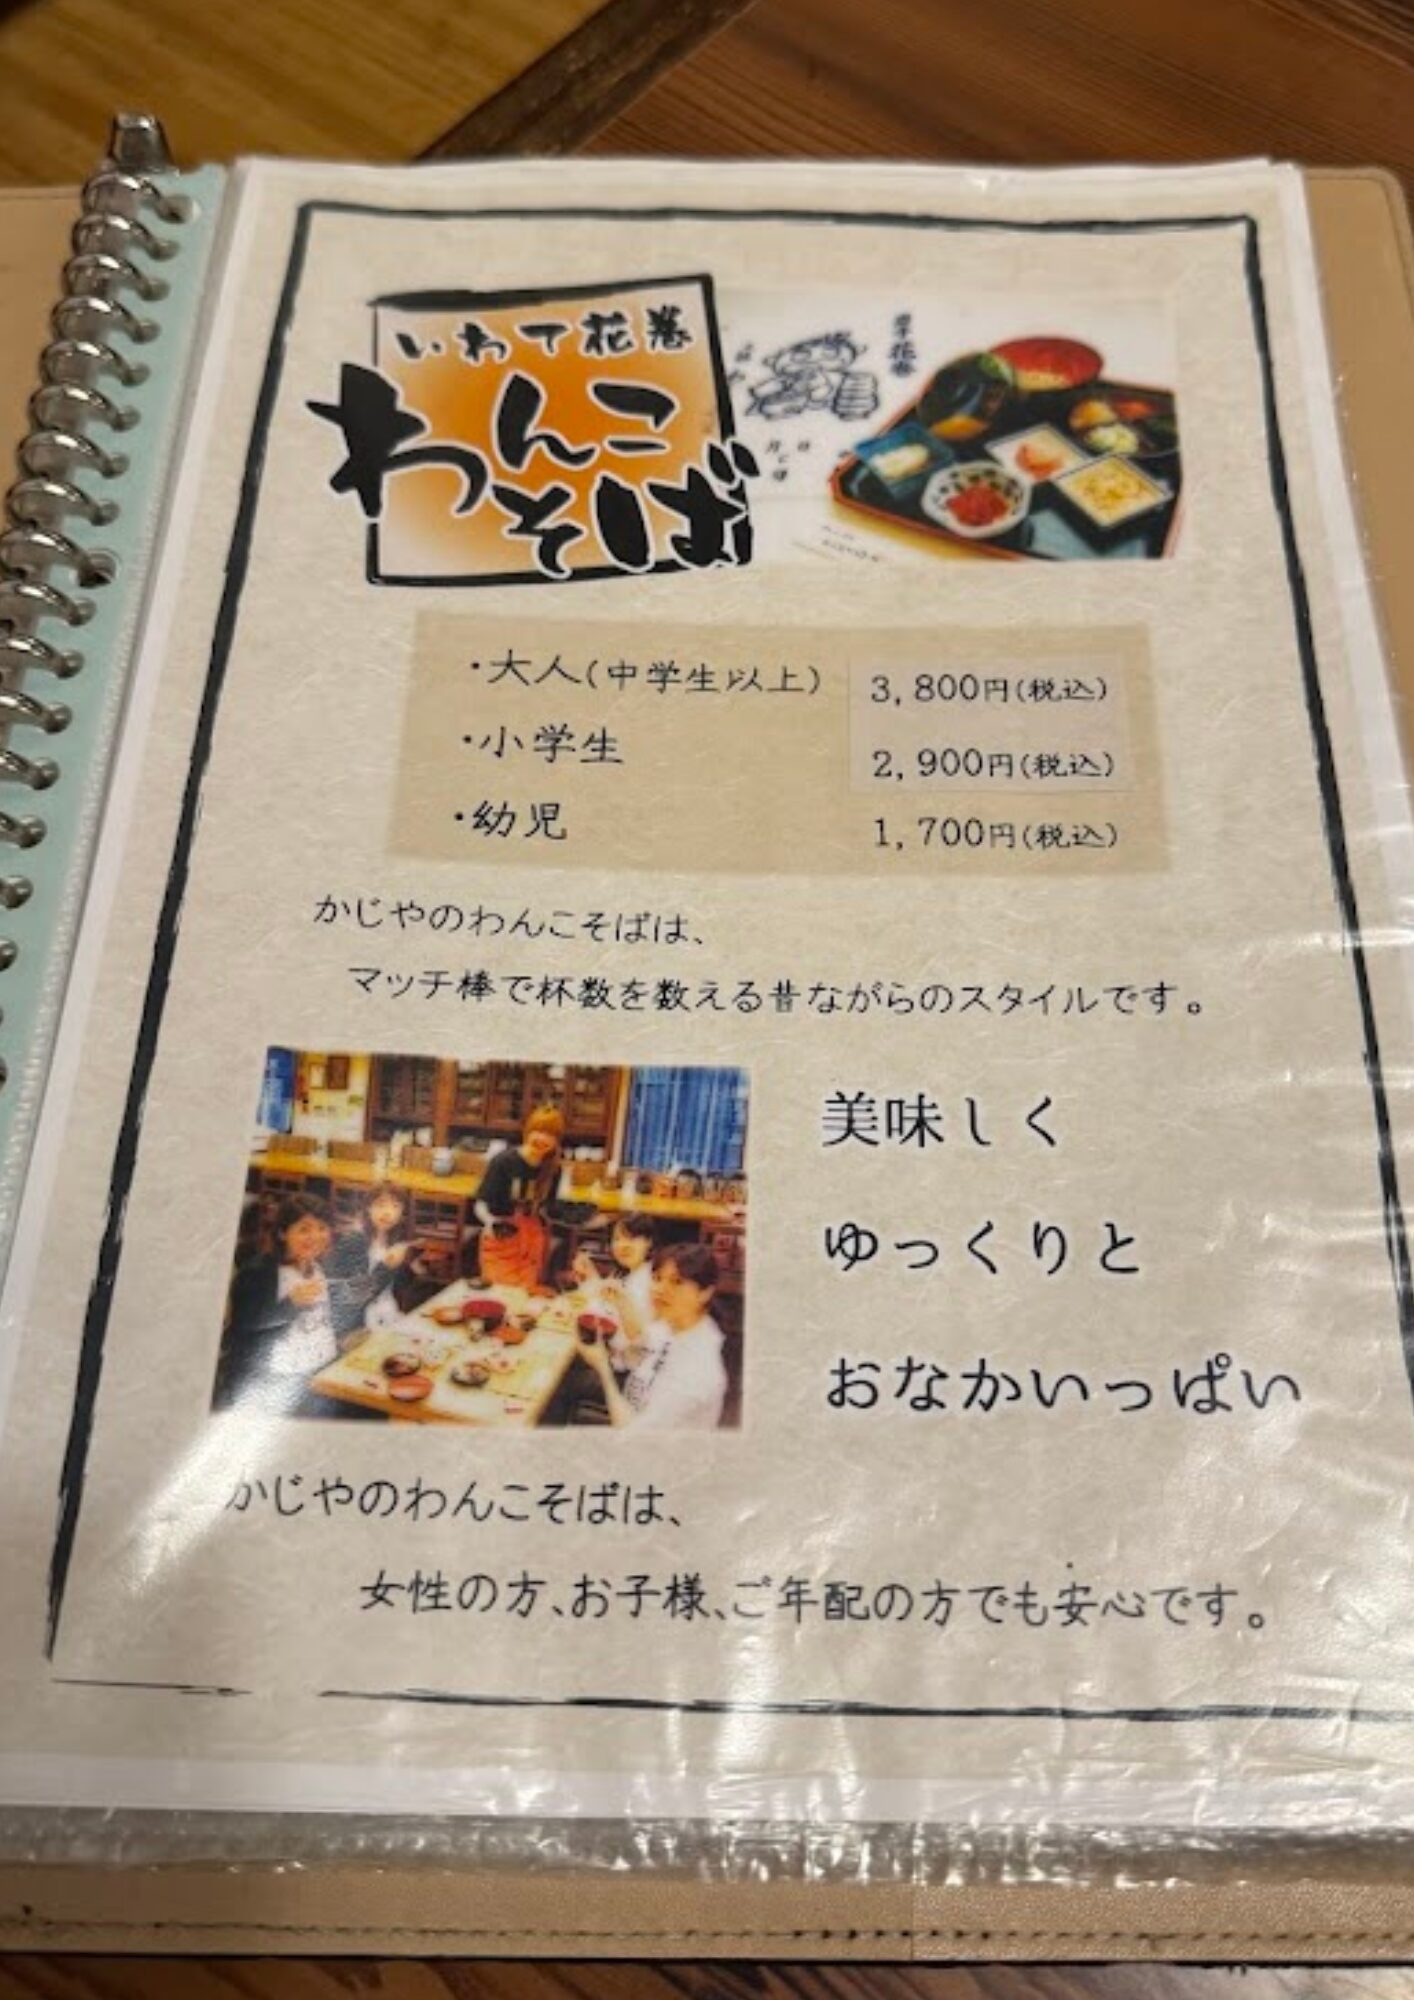 いわて花巻
わんこ
そば
・大人(中学生以上) 3,800円(税込)
・小学生 2,900円(税込)
・幼児 1,700円(税込)
かじやのわんこそばは、
マッチ棒で杯数を数える昔ながらのスタイルです。
美味しく
ゆっくりと
おなかいっぱい
かじやのわんこそばは、
女性の方、お子様、ご年配の方でも安心です。